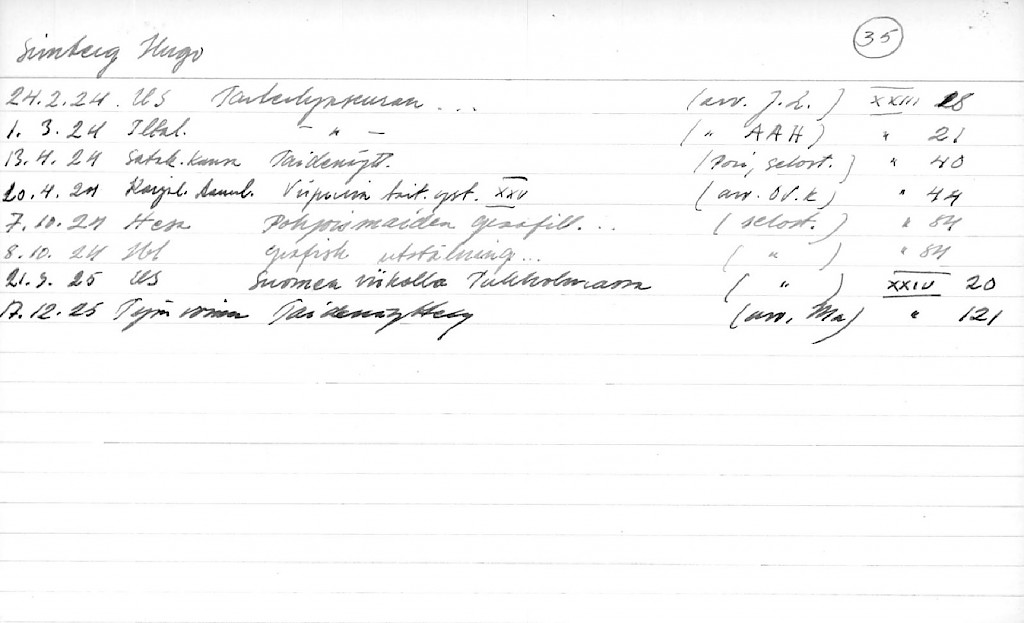 Simberg Hugo 35
24.2.24. US Taiteilijaseuran ... (arv. J.L.) XXIII 18
1. 3. 24 Iltal. - " - ( " AAH) " 21
13.4.24 Satak. Kansa Taidenäytt. (Pori, selost.) " 40
20.4.24 Karjal. Sanul. Viipurin tait. yst. XXV (arv. O.V.K) " 44
7.10.24 HeSa Pohjoismaiden grafill... ( selost. ) " 84
8.10. 24 Hbl grafisk utställning... ( " ) " 84
21.3. 25 US Suomen viikolla Tukholmassa ( " ) XXIV 20
17.12.25 Työn voima Taidenäyttely (arv. Mn) " 121